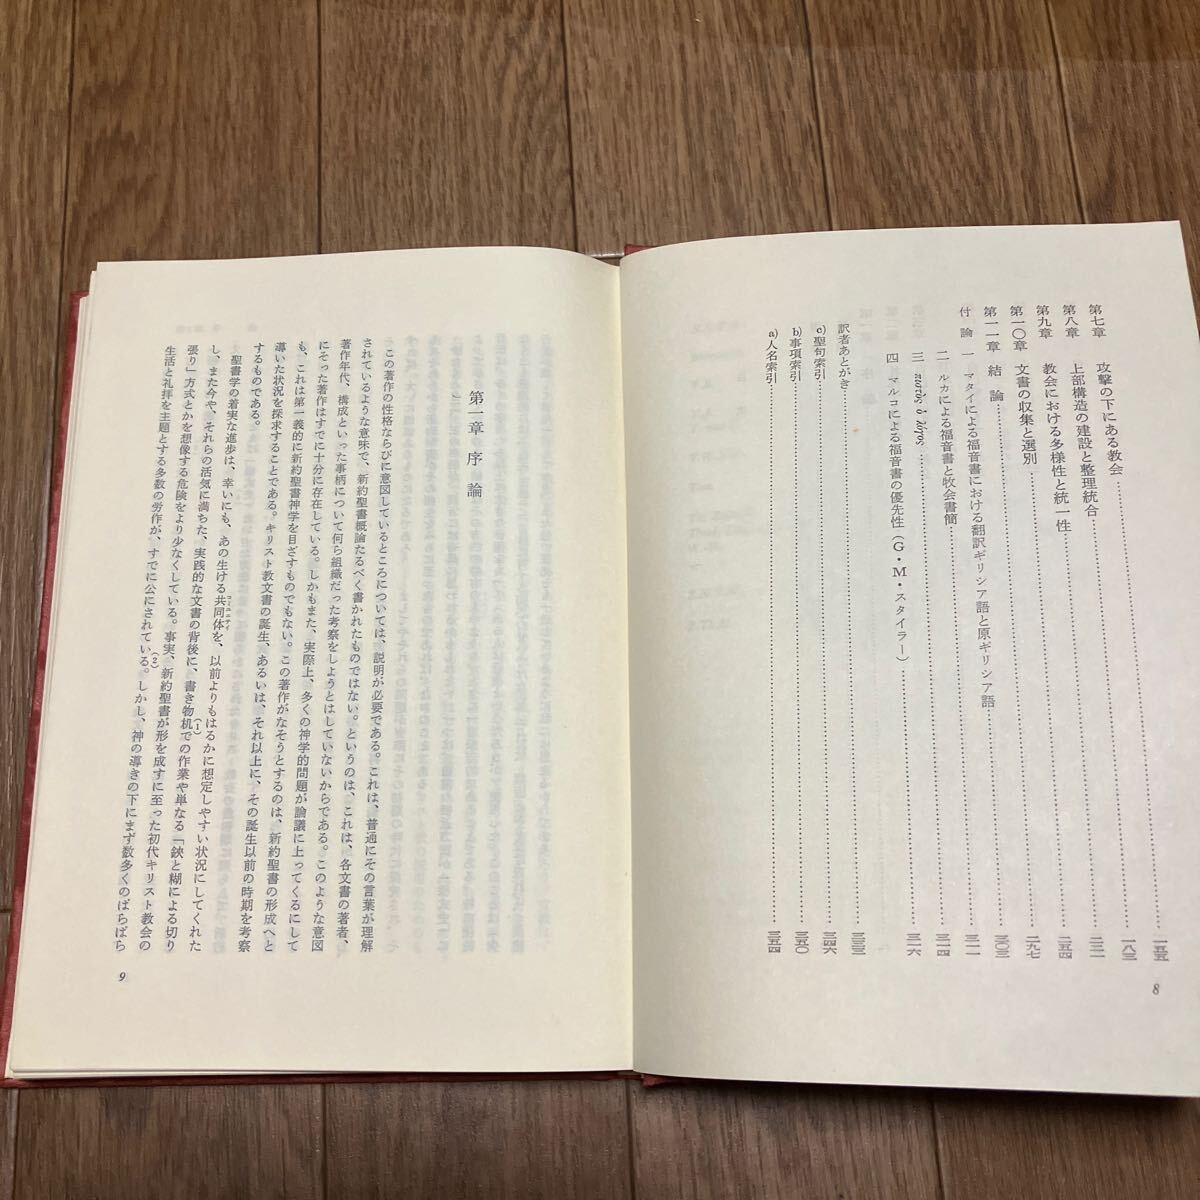 第七章 攻撃の下にある教会……一五五
第八章 上部構造の建設と整理統合……一八三
第九章 教会における多様性と統一性……二三一
第一〇章 文書の収集と選別……二五四
第一一章 結論……二九七
付論 一 マタイによる福音書における翻訳ギリシア語と原ギリシア語……三〇三
二 ルカによる福音書と牧会書簡……三一一
三 πιστὸς ὁ λόγος……三一四
四 マルコによる福音書の優先性(G・M・スタイラー)……三一六
訳者あとがき……三三三
c)聖句索引……三四六
b)事項索引……三五〇
a)人名索引……三五四
8
第一章 序論
この著作の性格ならびに意図しているところについては、説明が必要である。これは、普通にその言葉が理解
されているような意味で、新約聖書概論たるべく書かれたものではない。というのは、これは、各文書の著者、
著作年代、構成といった事柄について何ら組織だった考察をしようとはしていないからである。このような意図
にそった著作はすでに十分に存在している。しかもまた、実際上、多くの神学的問題が論議に上ってくるにして
も、これは第一義的に新約聖書神学を目ざすものでもない。この著作がなそうとするのは、新約聖書の形成へと
導いた状況を探求することである。キリスト教文書の誕生、あるいは、それ以上に、その誕生以前の時期を考察
するものである。
聖書学の着実な進歩は、幸いにも、あの生ける共同体コミュニティを、以前よりもはるかに想定しやすい状況にしてくれた
し、また今や、それらの活気に満ちた、実践的な文書の背後に、書き物机での作業や単なる「鋏と糊による切り(1)
張り」方式とかを想像する危険をより少なくしている。事実、新約聖書が形を成すに至った初代キリスト教会の
生活と礼拝を主題とする多数の労作が、すでに公にされている。(2)しかし、神の導きの下にまず数多くのばらばら
9